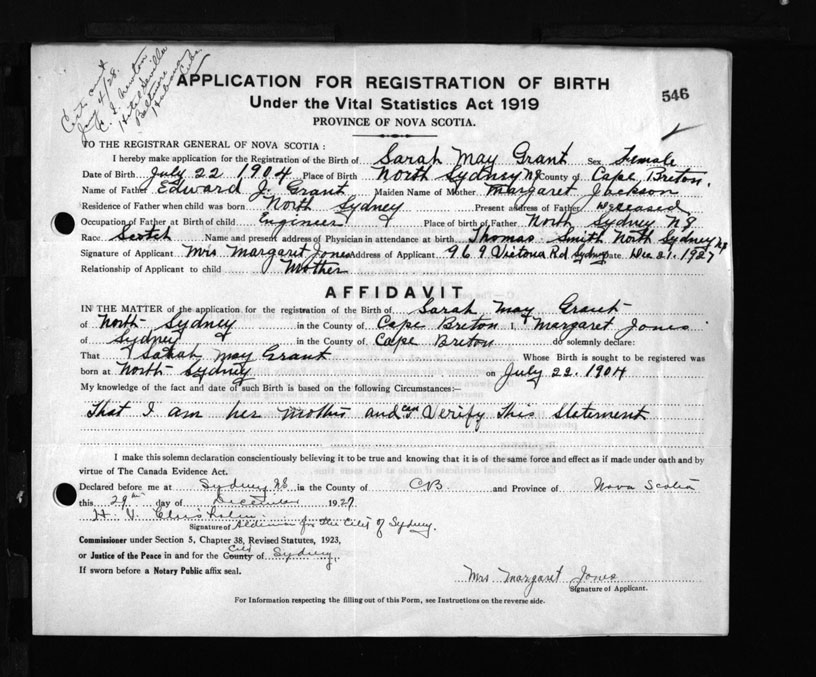 Cert sent
Jan 4/28.
Hotel Sevilla
Biltmore
Cuba.
APPLICATION FOR REGISTRATION OF BIRTH
546
Under the Vital Statistics Act 1919
PROVINCE OF NOVA SCOTIA.
TO THE REGISTRAR GENERAL OF NOVA SCOTIA :
I hereby make application for the Registration of the Birth of Sarah May Grant Sex Female
Date of Birth July 22 1904 Place of Birth North Sydney NS County of Cape Breton.
Name of Father Edward J. Grant Maiden Name of Mother Margaret Jackson
Residence of Father when child was born North Sydney Present address of Father Deceased
Occupation of Father at Birth of child Engineer Place of birth of Father North Sydney N S
Race Scotch Name and present address of Physician in attendance at birth Thomas Smith North Sydney NS
Signature of Applicant Mrs Margaret Jones Address of Applicant 969 Victoria Rd Sydney Date Dec 21. 1927
Relationship of Applicant to child Mother
AFFIDAVIT
IN THE MATTER of the application for the registration of the Birth of Sarah May Grant
of North Sydney in the County of Cape Breton I, Margaret Jones
of Sydney in the County of Cape Breton do solemnly declare:
That Sarah May Grant Whose Birth is sought to be registered was
born at North Sydney on July 22. 1904
My knowledge of the fact and date of such Birth is based on the following Circumstances:—
That I am her Mother and can Verify This Statement
I make this solemn declaration conscientiously believing it to be true and knowing that it is of the same force and effect as if made under oath and by
virtue of The Canada Evidence Act.
Declared before me at Sydney N.S in the County of C.B. and Province of Nova Scotia
this 29th day of December 1927
H. V. Chisholm
Signature of Alderman for the City of Sydney.
Commissioner under Section 5, Chapter 38, Revised Statutes, 1923,
or Justice of the Peace in and for the County City of Sydney
If sworn before a Notary Public affix seal.
Mrs Margaret Jones
Signature of Applicant.
For Information respecting the filling out of this Form, see Instructions on the reverse side.